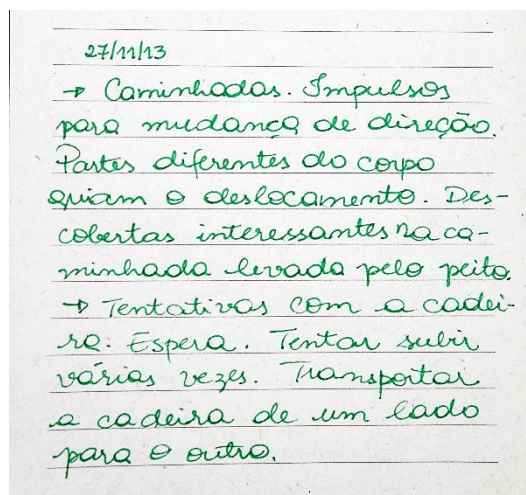 27/11/13
→ Caminhadas. Impulsos
para mudança de direção.
Partes diferentes do corpo
guiam o deslocamento. Des-
cobertas interessantes na ca-
minhada levada pelo peito.
→ Tentativas com a cadei-
ra: Espera. Tentar subir
várias vezes. Transportar
a cadeira de um lado
para o outro.